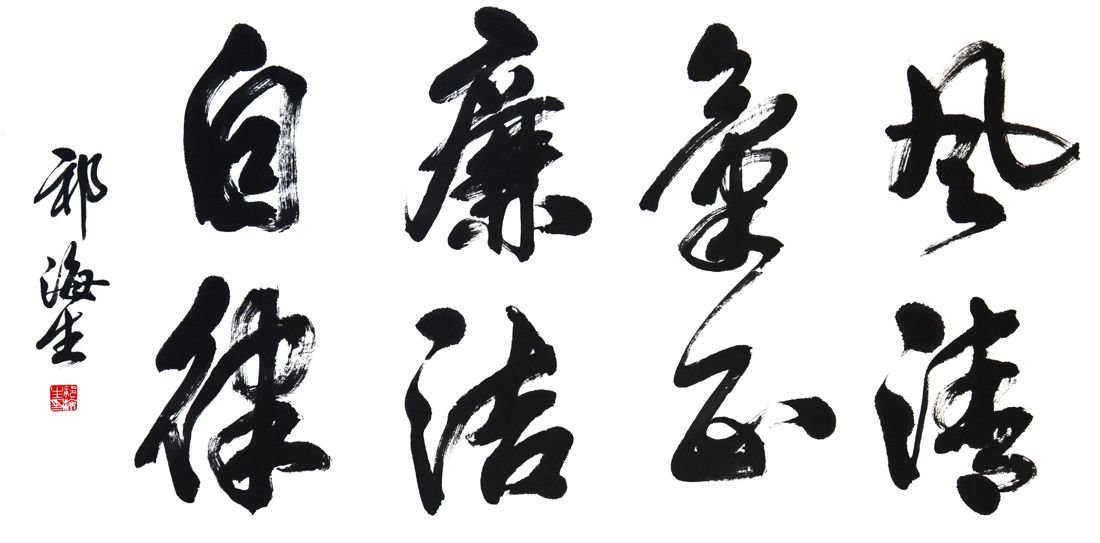 风清
氣正
廉洁
自律
祁海生